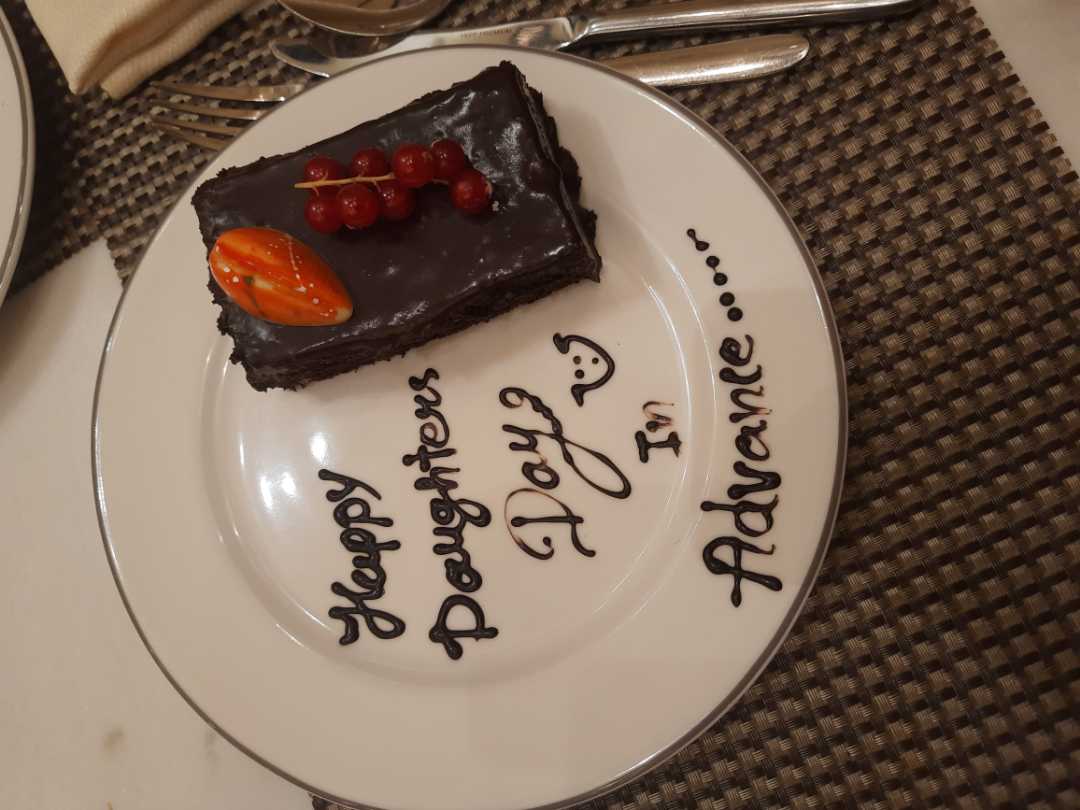 Happy
Daughters
Day
In
Advance.....